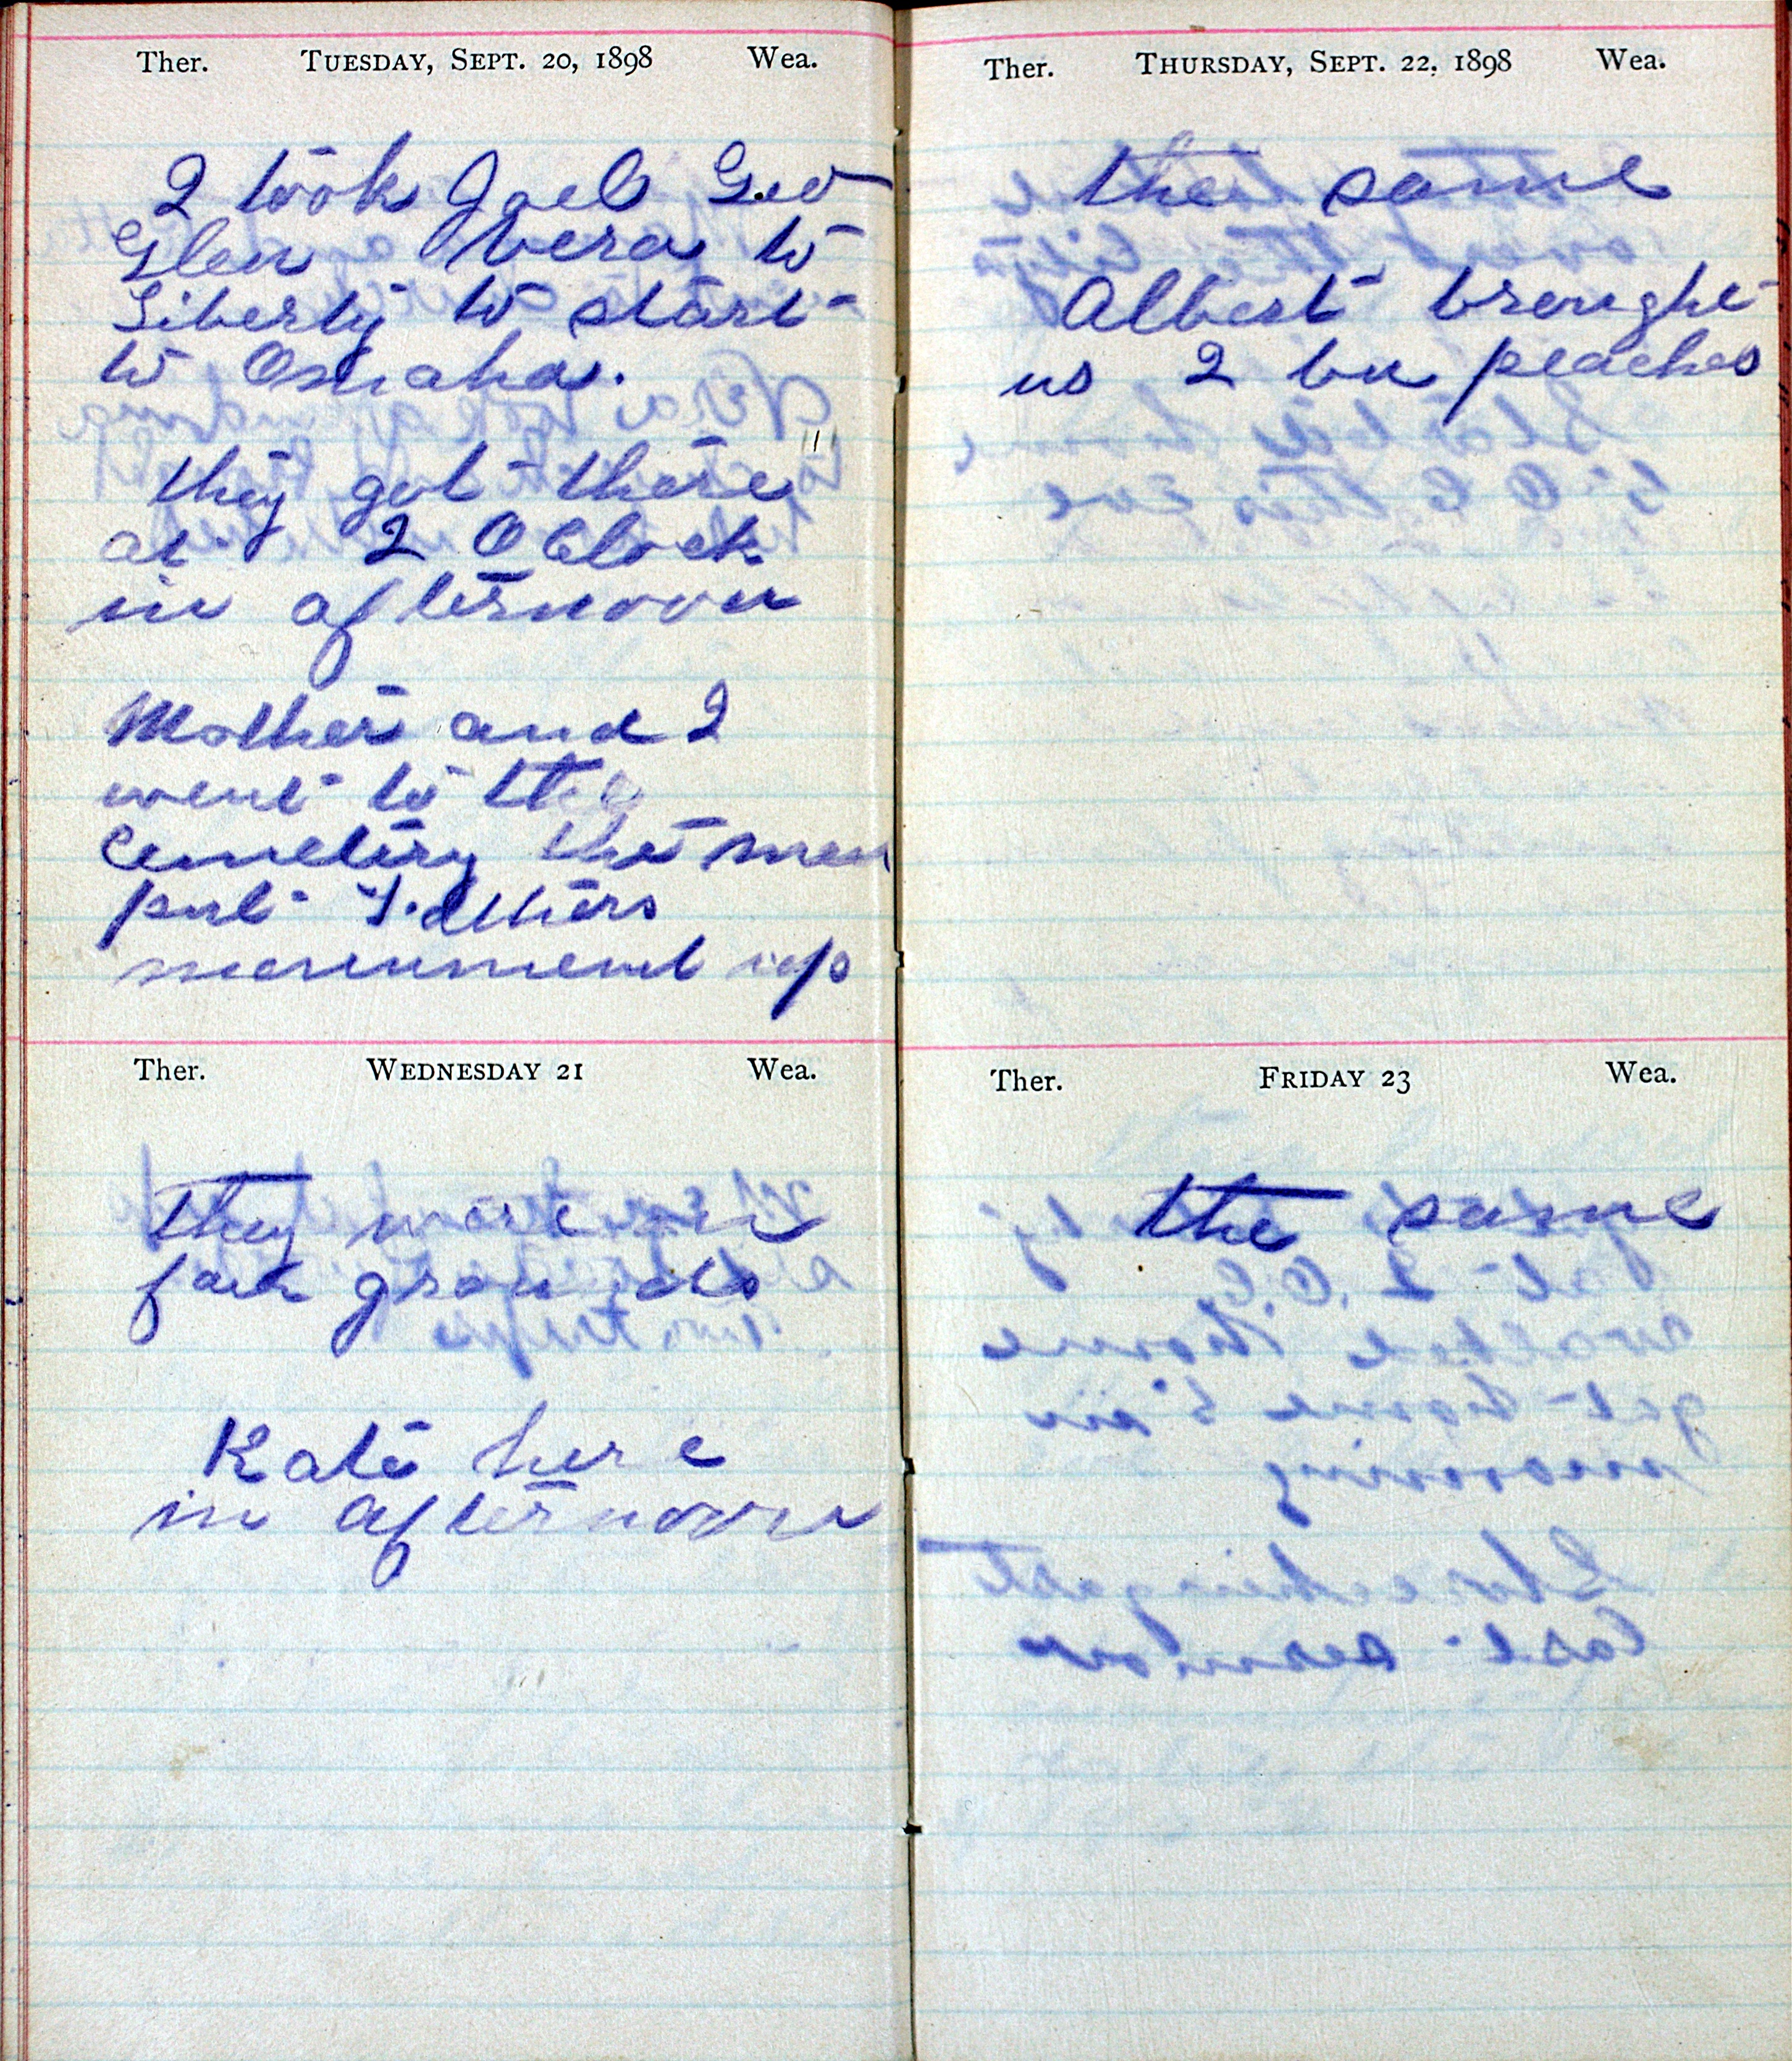 Ther. TUESDAY, SEPT. 20, 1898 Wea.
I took Joel Geo
Glen Vera to
Liberty to start
to Omaha.
they got there
at 2 O Clock
in afternoon
Mother and I
went to the
Cemetery the men
put Fathers
monument up
Ther. WEDNESDAY 21 Wea.
They were on
fair grounds
Kate here
in afternoon
Ther. THURSDAY, SEPT. 22, 1898 Wea.
the same
Albert brought
us 2 bu peaches
Ther. FRIDAY 23 Wea.
the same